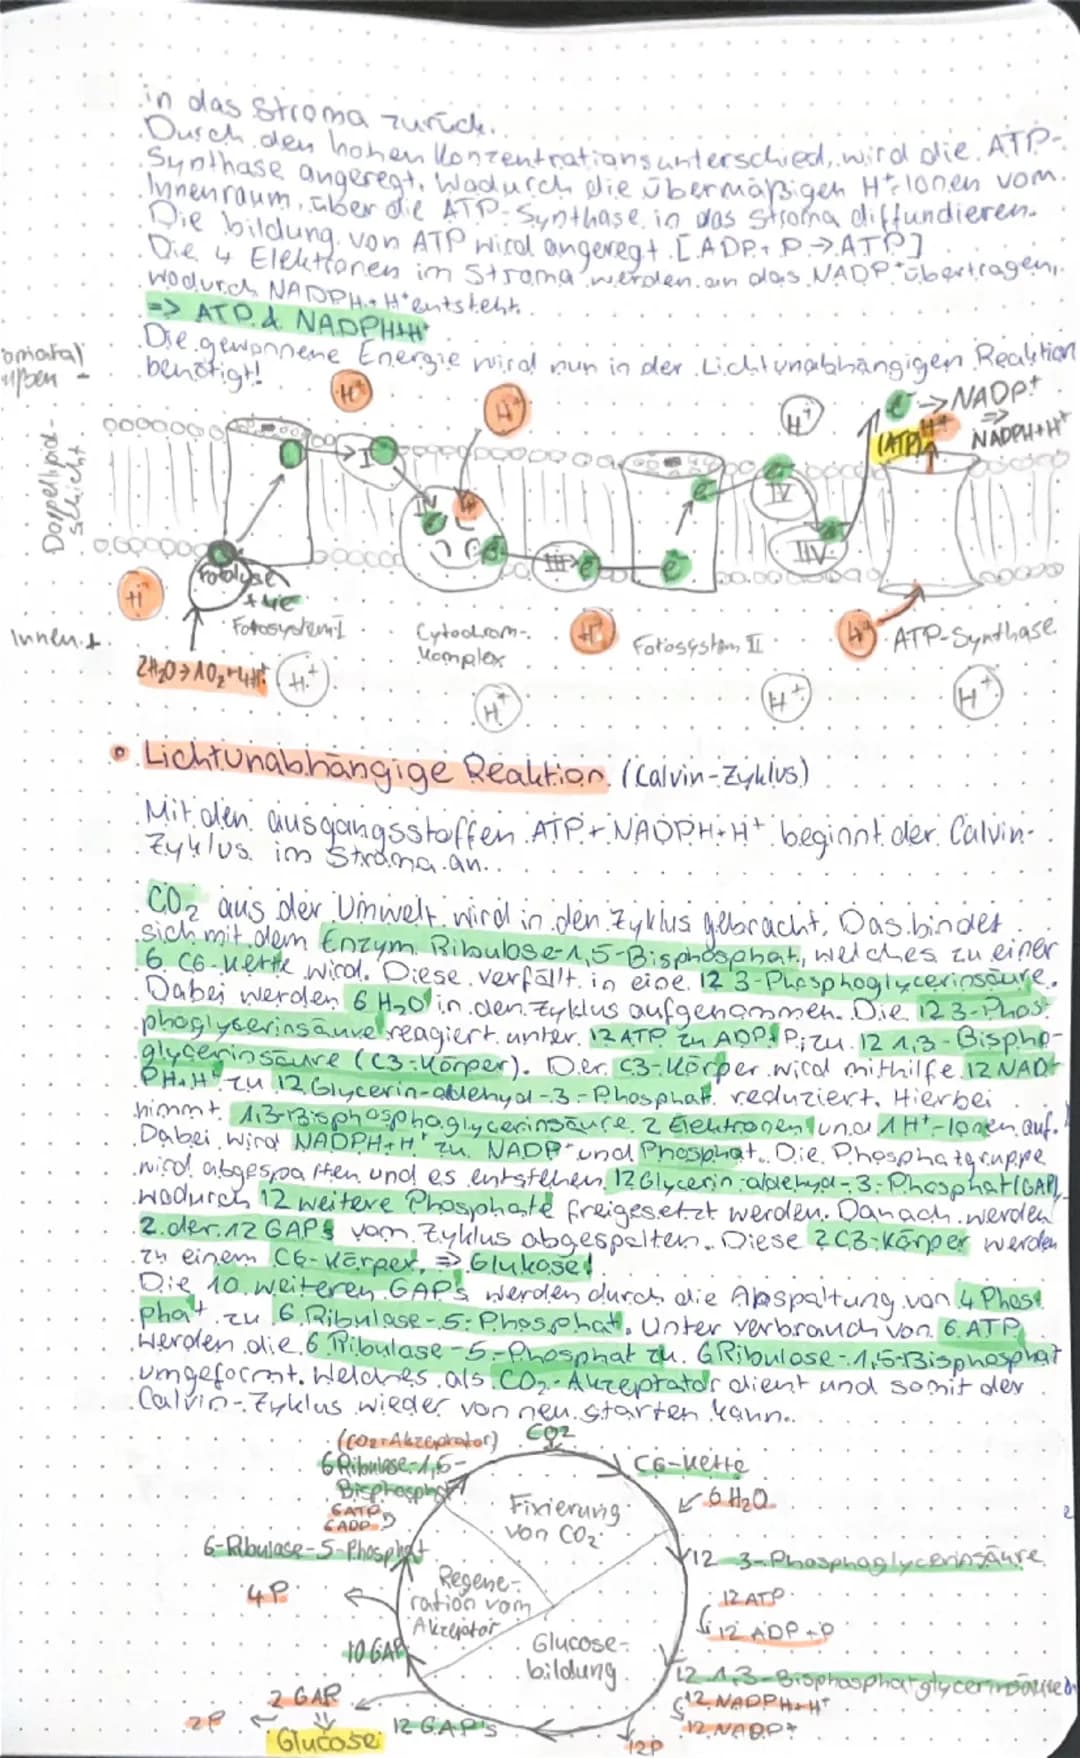 in das Stroma zurück.
Durch den hohen Konzentrationsunterschied, wird die ATP-
Synthase angeregt. Wodurch die übermäßigen H⁺-Ionen vom
Innenraum, über die ATP-Synthase in das Stroma diffundieren.
Die bildung von ATP wird angeregt. [ADP+P→ATP]
Die 4 Elektronen im Stroma werden an das NADP⁺ übertragen,
wodurch NADPH+H⁺ entsteht.
=> ATP & NADPH+H⁺
Die gewonnene Energie wird nun in der Lichtunabhängigen Reaktion
benötigt!
außen -
Doppellipid-
schicht
Innen +
H⁺ H⁺ H⁺
e⁻ → NADP⁺
=>
NADPH+H⁺
(ATP) H⁺
I
III
IV
Fotolyse
+4e⁻
Fotosystem I
Cytochrom-
komplex
Fotosystem II
ATP-Synthase
2H₂O→1O₂+4H⁺
H⁺ H⁺ H⁺ H⁺
• Lichtunabhängige Reaktion (Calvin-Zyklus)
Mit den ausgangsstoffen ATP + NADPH+H⁺ beginnt der Calvin-
Zyklus im Stroma an.
CO₂ aus der Umwelt wird in den Zyklus gebracht. Das bindet
sich mit dem Enzym Ribulose-1,5-Bisphosphat, welches zu einer
6 C6-Kette wird. Diese verfällt in eine 12 3-Phosphoglycerinsäure.
Dabei werden 6 H₂O in den Zyklus aufgenommen. Die 12 3-Phos-
phoglycerinsäure reagiert unter 12 ATP zu ADP+P; zu 12 1,3-Bispho-
glycerinsäure (C3-Körper). Der C3-Körper wird mithilfe 12 NAD
PH+H⁺ zu 12 Glycerin-aldehyd-3-Phosphat reduziert. Hierbei
nimmt 1,3-Bisphosphoglycerinsäure 2 Elektronen und 1 H⁺-Ionen auf.
Dabei wird NADPH+H⁺ zu NADP⁺ und Phosphat. Die Phosphatgruppe
wird abgespalten und es entstehen 12 Glycerin-aldehyd-3-Phosphat (GAP),
wodurch 12 weitere Phosphate freigesetzt werden. Danach werden
2 der 12 GAPs vom Zyklus abgespalten. Diese 2 C3-Körper werden
zu einem C6-Körper. => Glukose!
Die 10 weiteren GAPs werden durch die Abspaltung von 4 Phos-
phat zu 6 Ribulose-5-Phosphat. Unter verbrauch von 6 ATP
werden die 6 Ribulose-5-Phosphat zu 6 Ribulose-1,5-Bisphosphat
umgeformt. Welches als CO₂-Akzeptator dient und somit der
Calvin-Zyklus wieder von neu starten kann.
(CO₂-Akzeptator)
6 Ribulose-1,5-
Bisphosphat
6 ATP
6 ADP
6-Ribulose-5-Phosphat
4P
10 GAP
2 GAP
2P
Glucose
12 GAP's
CO₂
C6-Kette
6 H₂O
12 3-Phosphoglycerinsäure
12 ATP
12 ADP+P
12 1,3-Bisphosphatglycerinsäure
12 NADPH+H⁺
12 NADP⁺
12P
Fixierung
von CO₂
Regene-
ration vom
Akzeptor
Glucose-
bildung